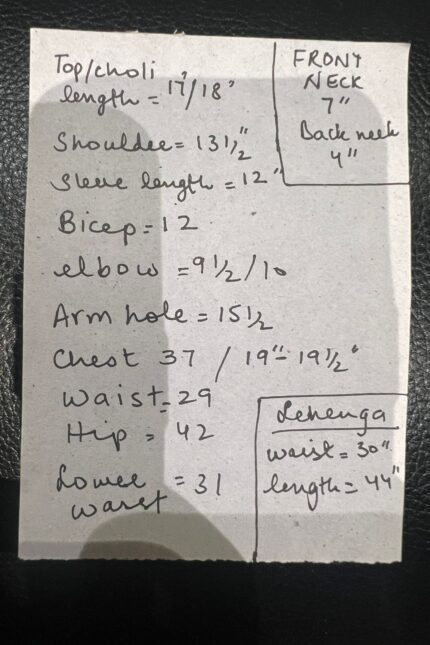 Top/choli
length = 17"/18"
Shoulder = 13 1/2"
Sleeve length = 12"
Bicep = 12
elbow = 9 1/2 / 10
Arm hole = 15 1/2
Chest 37 / 19"- 19 1/2"
Waist = 29
Hip = 42
Lower = 31
waist
FRONT
NECK
7"
Back neck
4"
Lehenga
waist = 30"
length = 44"